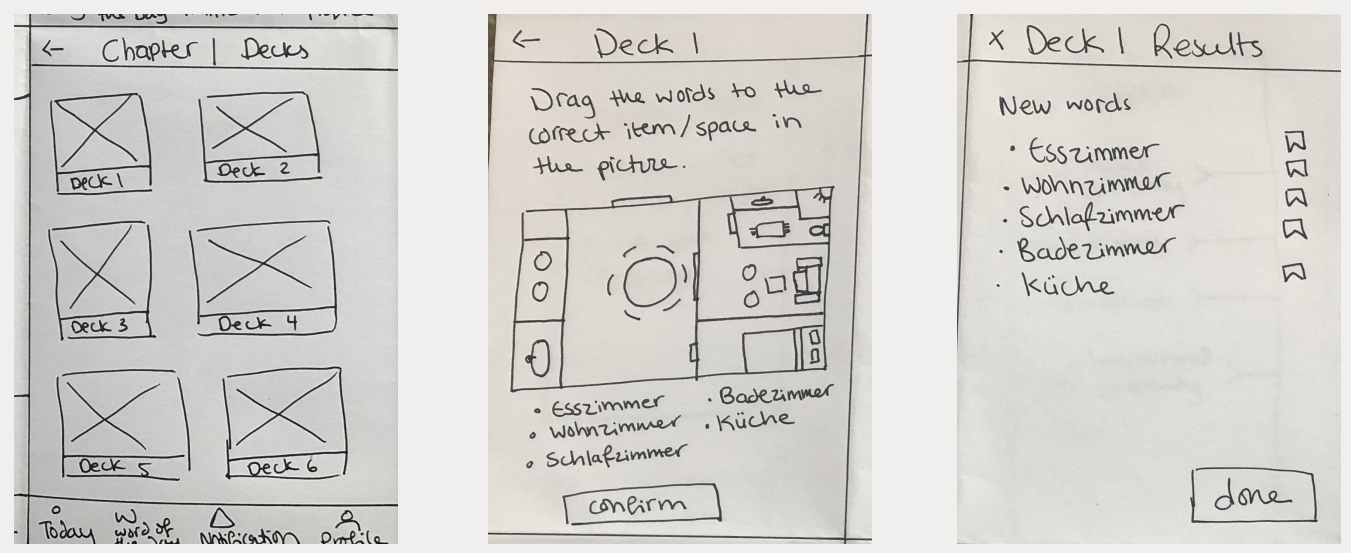 the Day
← Chapter 1 Decks
Deck 1
Deck 2
Deck 3
Deck 4
Deck 5
Deck 6
Today
W
word of
the Day
Notification
Profile
← Deck 1
Drag the words to the
correct item/space in
the picture.
• Esszimmer
• Wohnzimmer
• Schlafzimmer
• Badezimmer
• Küche
confirm
X Deck 1 Results
New words
• Esszimmer
• Wohnzimmer
• Schlafzimmer
• Badezimmer
• Küche
done